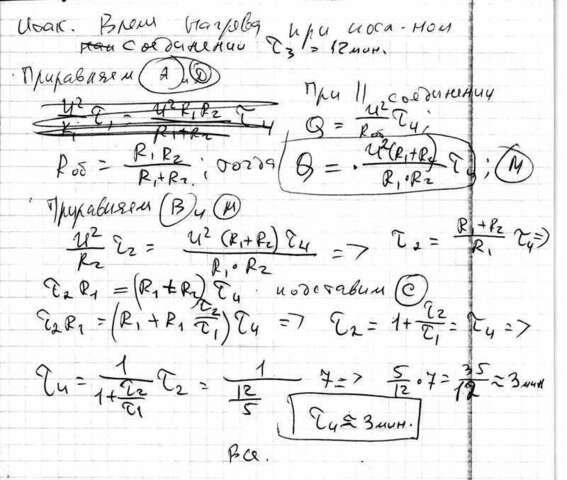 Изак. Время нагрева при посл-ном
соединении τ₃ = 12 мин.
Приравняем (A) и (D)
При || соединении
Q = U²/Rоб τ₄;
Rоб = R₁R₂/(R₁+R₂); тогда Q = U²(R₁+R₂)/(R₁·R₂) τ₄; (M)
Приравняем (B) и (M)
U²/R₂ τ₂ = U²(R₁+R₂)τ₄/(R₁·R₂) => τ₂ = (R₁+R₂)/R₁ τ₄ =>
τ₂R₁ = (R₁+R₂) τ₄ подставим (C)
τ₂R₁ = (R₁ + R₁ τ₂/τ₁) τ₄ => τ₂ = 1 + τ₂/τ₁ = τ₄ =>
τ₄ = 1/(1+τ₂/τ₁) τ₂ = 1/(12/5) 7 => 5/12 · 7 = 35/12 ≈ 3 мин
τ₄ ≈ 3 мин.
Все.